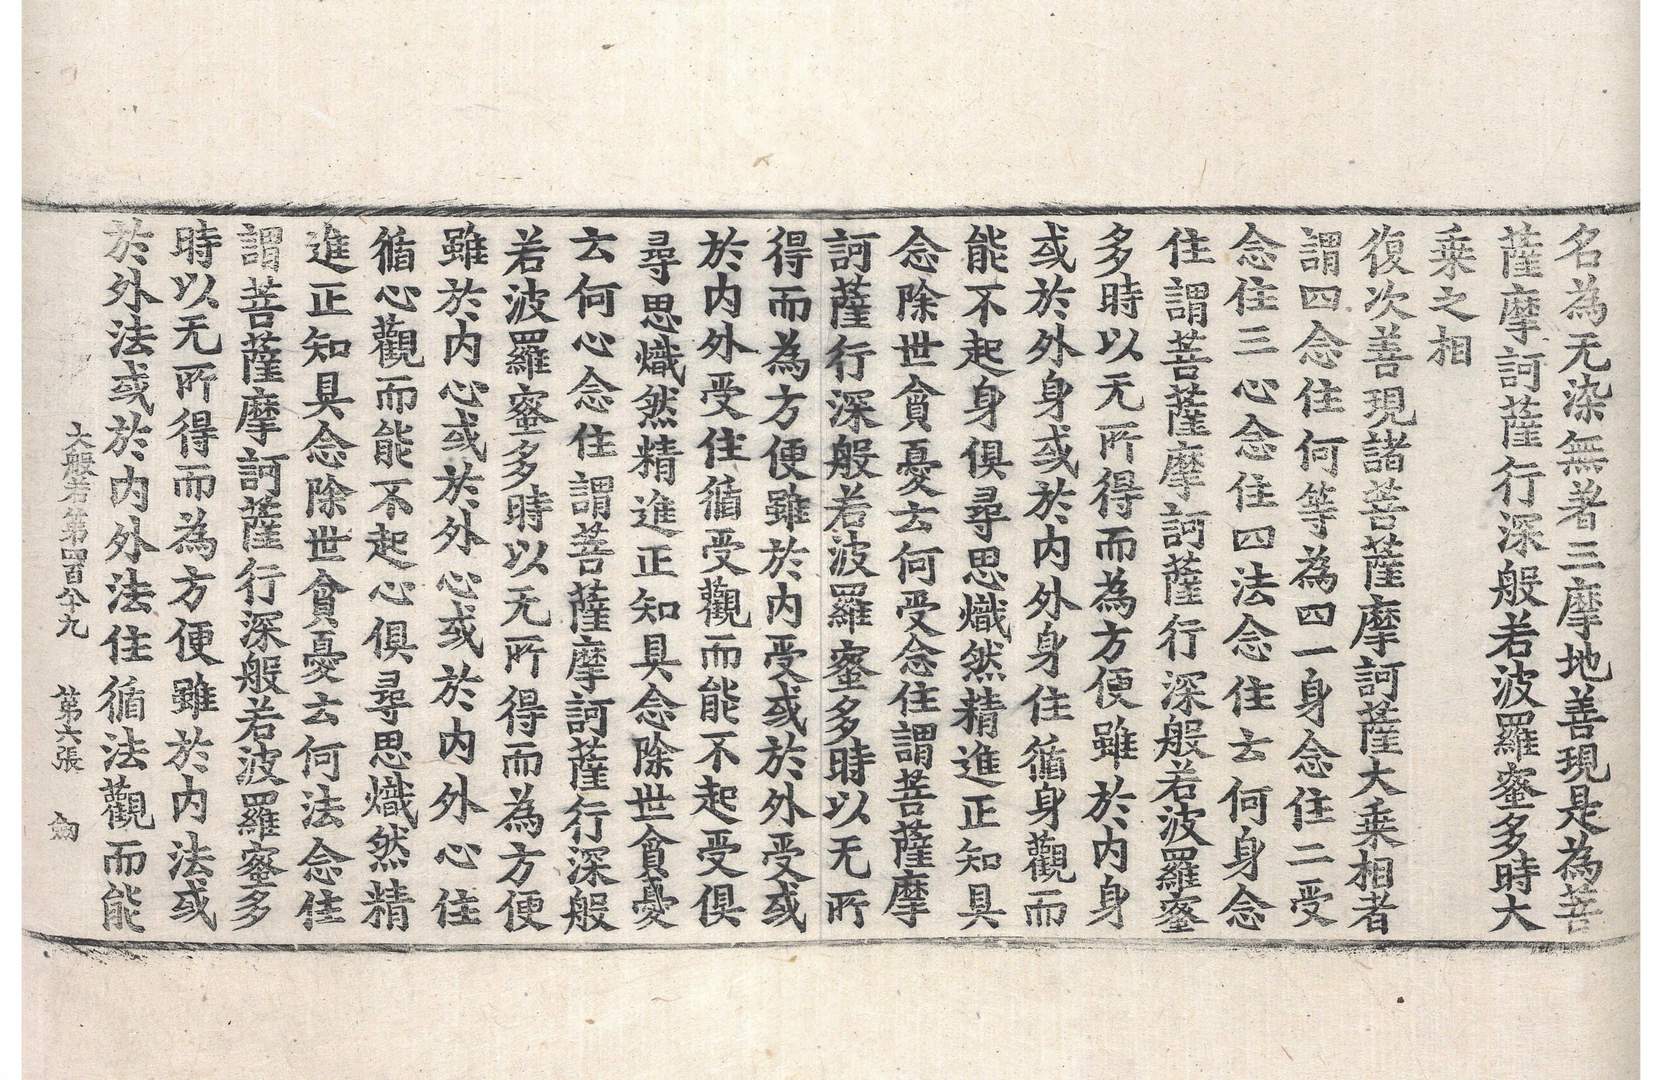 名為无染無著三摩地善現是為菩
薩摩訶薩行深般若波羅蜜多時大
乗之相
復次善現諸菩薩摩訶薩大乗相者
謂四念住何等為四一身念住二受
念住三心念住四法念住云何身念
住謂菩薩摩訶薩行深般若波羅蜜
多時以无所得而為方便雖於內身
或於外身或於內外身住循身觀而
能不起身俱尋思熾然精進正知具
念除世貪憂云何受念住謂菩薩摩
訶薩行深般若波羅蜜多時以无所
得而為方便雖於內受或於外受或
於內外受住循受觀而能不起受俱
尋思熾然精進正知具念除世貪憂
云何心念住謂菩薩摩訶薩行深般
若波羅蜜多時以无所得而為方便
雖於內心或於外心或於內外心住
循心觀而能不起心俱尋思熾然精
進正知具念除世貪憂云何法念住
謂菩薩摩訶薩行深般若波羅蜜多
時以无所得而為方便雖於內法或
於外法或於內外法住循法觀而能
大般若第四百八十九 第六張 劒